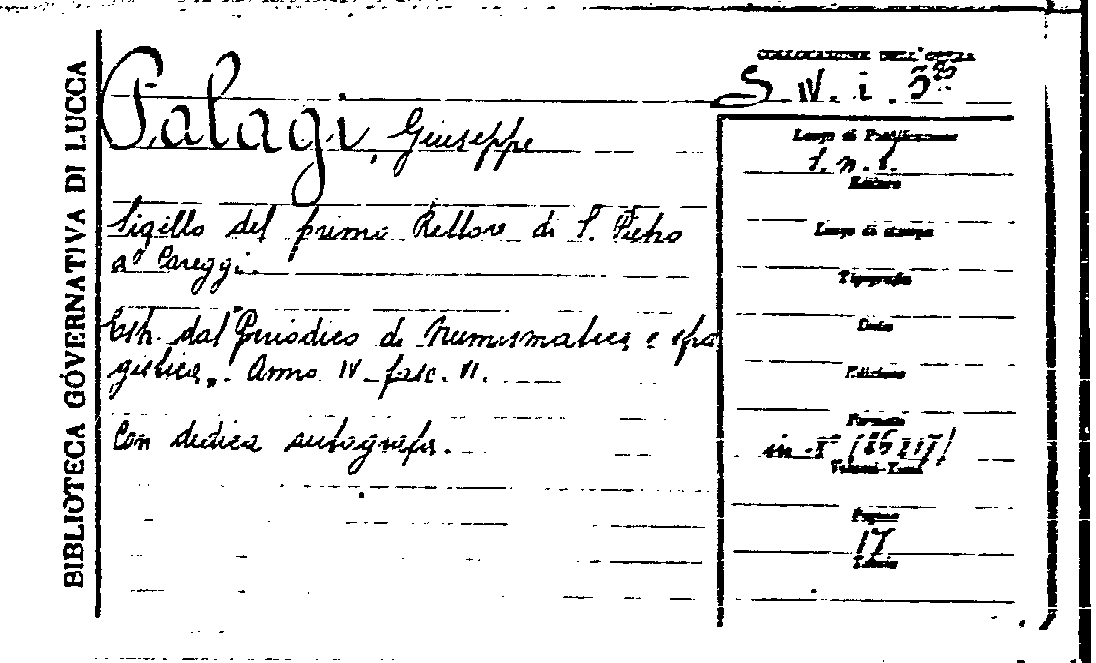 BIBLIOTECA GOVERNATIVA DI LUCCA
COLLOCAZIONE DELL'OPERA
S. IV. i.
Palagi, Giuseppe
Sigillo del primo Rettore di S. Pietro
a Careggi.
Estr. dal Periodico di Numismatica e sfra
gistica". Anno IV - fasc. VI.
Con dedica autografa.
Luogo di Pubblicazione
S. n. t.
Editore
Luogo di stampa
Tipografia
Data
Edizione
Formato
in
Volumi-Tomi
Pagine
17
Tavole